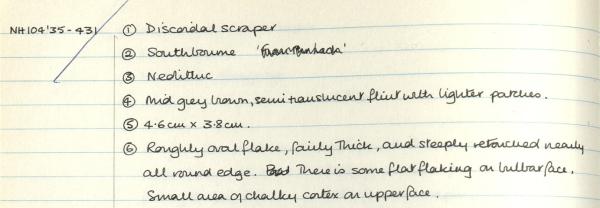 NH104'35-431 ① Discoidal scraper
② Southbourne
③ Neolithic
④ Mid grey brown, semi translucent flint with lighter patches.
⑤ 4.6cm x 3.8cm.
⑥ Roughly oval flake, fairly thick, and steeply retouched nearly
all round edge. There is some flat flaking on bulbar face.
Small area of chalky cortex on upper face.